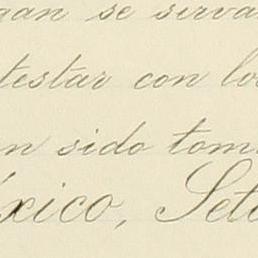 gan se serva
testar con los
n sido tom
xico, Sete